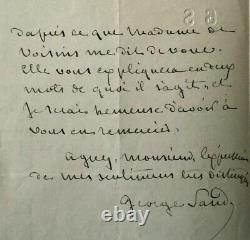 dapres ce que Madame de
Voisins me dit de vous.
Elle vous expliquera en deux
mots de quoi il s'agit, et
je serais heureuse d'avoir à
vous en remercier.
agréez, Monsieur, l'expression
de mes sentiments très distingués
George Sand